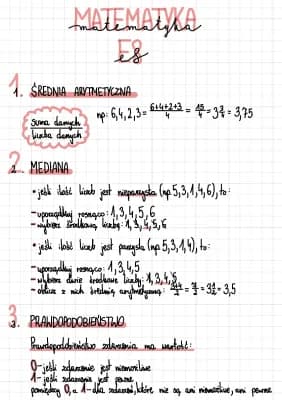 MATEMATYKA
matematyka
E8
e8
1. ŚREDNIA ARYTMETYCZNA
suma danych
liczba danych
np: 6,4,2,3 = 6+4+2+3/4 = 15/4 = 3 3/4 = 3,75
2. MEDIANA
• jeśli ilość liczb jest nieparzysta (np. 5,3,1,4,6), to:
- uporządkuj rosnąco: 1,3,4,5,6
- wybierz środkową liczbę: 1,3,4,5,6
• jeśli ilość liczb jest parzysta (np. 5,3,1,4), to:
- uporządkuj rosnąco: 1,3,4,5
- wybierz dwie środkowe liczby: 1,3,4,5
- oblicz z nich średnią arytmetyczną: 3+4/2 = 7/2 = 3 1/2 = 3,5
3. PRAWDOPODOBIEŃSTWO
Prawdopodobieństwo zdarzenia ma wartość:
0 - jeśli zdarzenie jest niemożliwe
1 - jeśli zdarzenie jest pewne
pomiędzy 0, a 1 - dla zdarzeń, które nie są ani niemożliwe, ani pewne